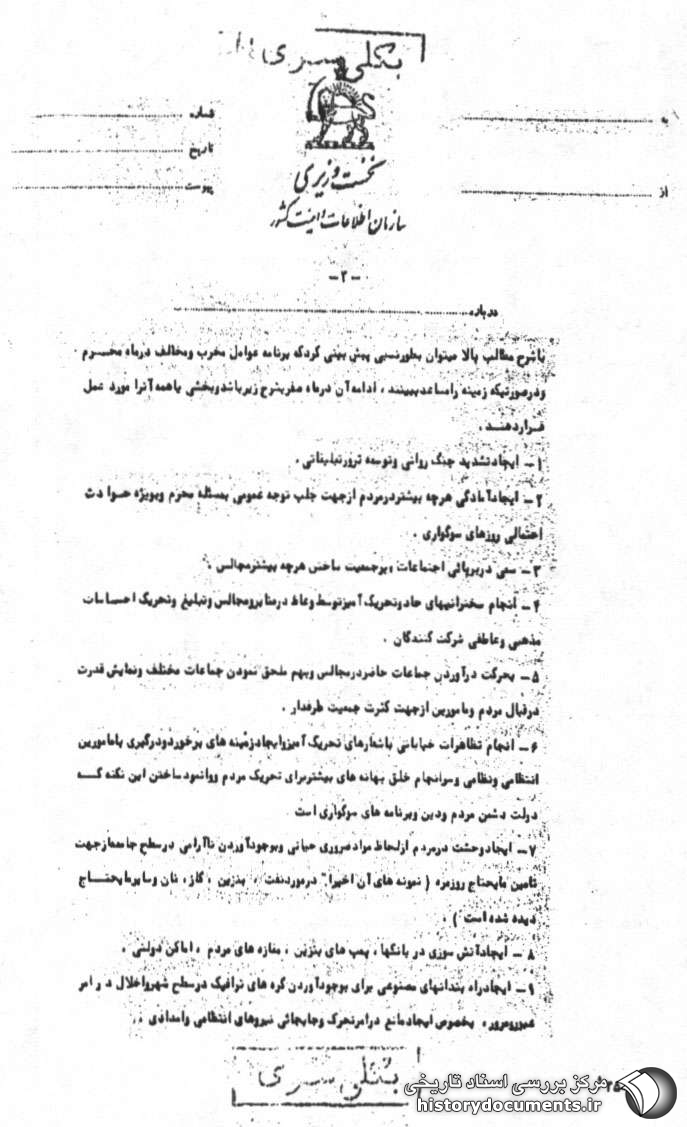 بکلی سری
به
شماره
از
تاریخ
پیوست
نخست وزیری
سازمان اطلاعات و امنیت کشور
-۲-
درباره
باشرح مطالب بالا میتوان بطورنسبی پیش بینی کردکه برنامه عوامل مخرب ومخالف درماه محـرم
ودرصورتیکه زمینه رامساعدببینند ، ادامه آن درماه صفربشرح زیرباشدوبخشی یاهمه آنرا مورد عمل
قـراردهنـد .
۱- ایجادتشدید جنگ روانی وتوسعه ترورتبلیغاتی .
۲- ایجادآمادگی هرچه بیشتردرمردم ازجهت جلب توجه عمومی بمسئله محرم وبویژه حـوادث
احتمالی روزهای سوگواری .
۳- سعی دربرپائی اجتماعات ، پرجمعیت ساختن هرچه بیشترمجالس .
۴- انجام سخنرانیهای حادوتحریک آمیزتوسط وعاظ درمنابرومجالس وتبلیغ وتحریک احسـاسات
مذهبی وعاطفی شرکت کنندگان .
۵- بحرکت درآوردن جماعات حاضردرمجالس وبهم ملحق نمودن جماعات مختلف ونمایش قدرت
درقبال مردم ومامورین ازجهت کثرت جمعیت طرفدار .
۶- انجام تظاهرات خیابانی باشعارهای تحریک آمیزوایجادزمینه های برخوردودرگیری بامامورین
انتظامی ونظامی وسرانجام خلق بهانه های بیشتربرای تحریک مردم ووانمودساختن این نکته کـه
دولت دشمن مردم ودین وبرنامه های سوگواری است
۷- ایجادوحشت درمردم ازلحاظ موادضروری حیاتی وبوجودآوردن ناآرامی درسطح جامعه ازجهت
تامین مایحتاج روزمره ( نمونه های آن اخیرا" درموردنفت ، بنزین ، گاز ، نان وسایرمایحتـاج
دیده شده است ) .
۸ - ایجادآتش سوزی در بانکها ، پمپ های بنزین ، مغازه های مردم ، اماکن دولتی .
۹- ایجادراه بندانهای مصنوعی برای بوجودآوردن گره های ترافیک درسطح شهرواخلال در امر
عبورومرور ، بخصوص ایجادمانع درامرتحرک وجابجائی نیروهای انتظامی وامدادی .
بکلی سری
مرکز بررسی اسناد تاریخی
historydocuments.ir